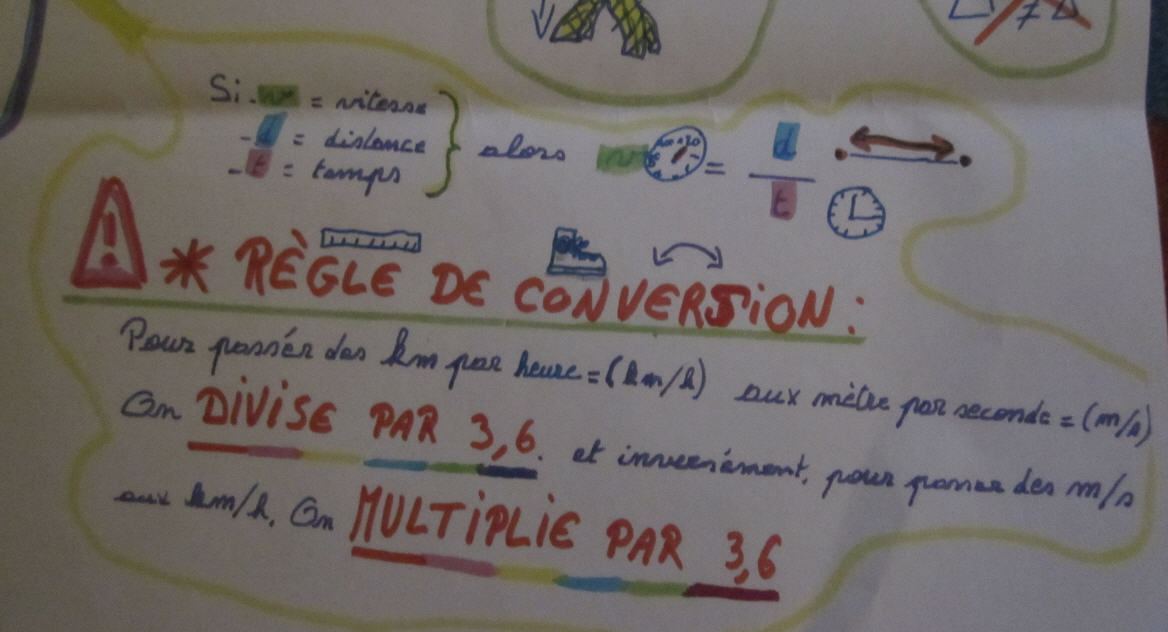 Si - v = vitesse
- d = distance
- t = temps
alors v = d / t
* RÈGLE DE CONVERSION :
Pour passér des km par heure = (km/h) aux mètre par seconde = (m/s)
On DIVISE PAR 3,6. et inversément, pour passer des m/s
aux km/h, On MULTIPLIE PAR 3,6